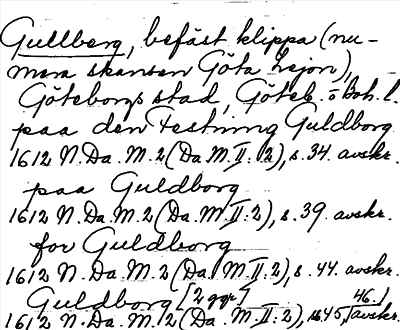 Gullberg, befäst klippa (nu-
mera skansen Göta Lejon),
Göteborgs stad, Göteb. o Boh. l.
paa den Festning Guldborg
1612 N. Da. M. 2 (Da. M. II: 2), s. 34. avskr.
paa Guldborg
1612 N. Da. M. 2 (Da. M. II: 2), s. 39. avskr.
for Guldborg
1612 N. Da. M. 2 (Da. M. II: 2), s. 44. avskr.
Guldborg [2 ggr] 46.)
1612 N. Da. M. 2 (Da. M. II: 2), s. 45, avskr.